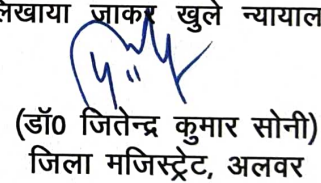 जाकर खुले
(डॉ0 जितेन्द्र कुमार सोनी)
जिला मजिस्ट्रेट, अलवर